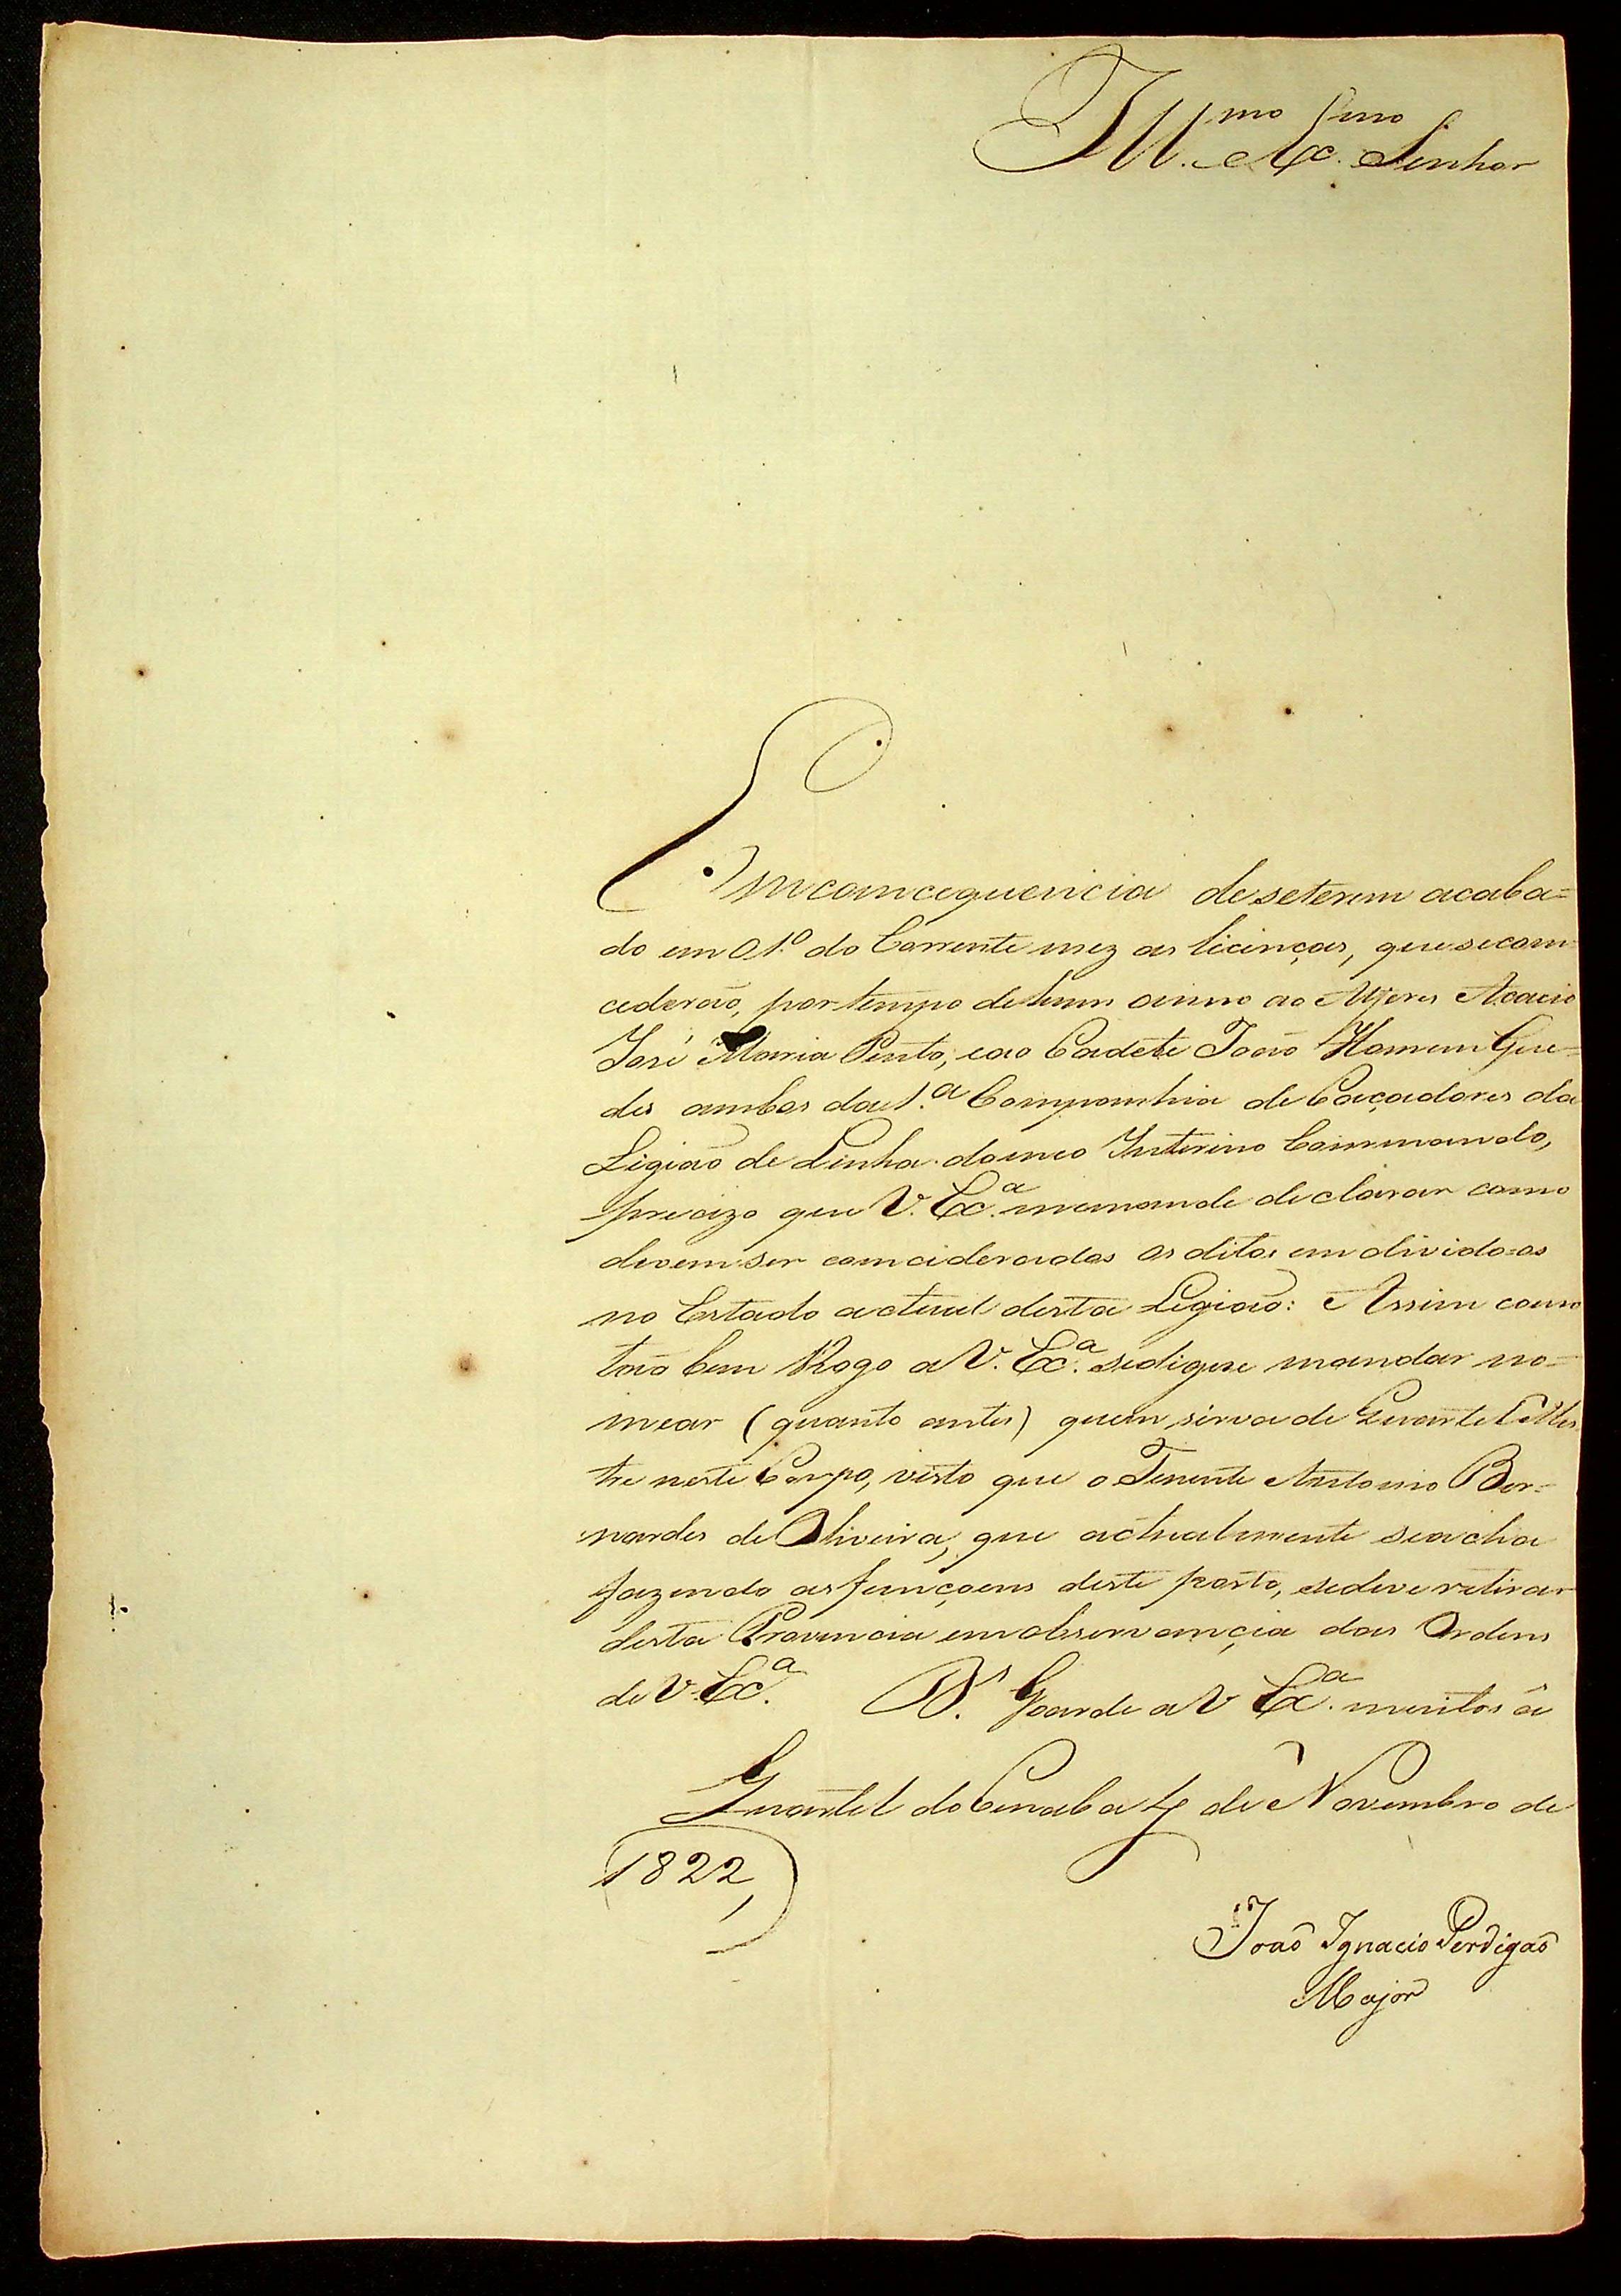 Ill.mo e Ex.mo Senhor
Em comcequencia de se terem acaba=
do em o 1.º do Corrente mez as licenças, que se com
cederão, por tempo de hum anno ao Alferes Acacio
José Maria Pinto, e ao Cadete João Homem Gue=
des ambos da 1.ª Companhia de Caçadores da
Ligião de Linha do meo Interino Commando,
precizo que V. Ex.ª me mande declarar como
devem ser comciderados os ditos emdividoos
no Estado actual desta Legião: Assim como
tão bem Rogo a V. Ex.ª se digne mandar no=
mear (quanto antes) quem sirva de Quartel Mes
tre neste Corpo, visto que o Tenente Antonio Ber=
nardes de Oliveira, que actualmente se acha
fazendo as funçoens deste posto, se deve retirar
desta Provincia em observancia das Ordens
de V. Ex.ª D.s Goarde a V Ex.ª muitos a.
Quartel do 4 de Novembro de
1822,
João Ignacio Perdigão
Major